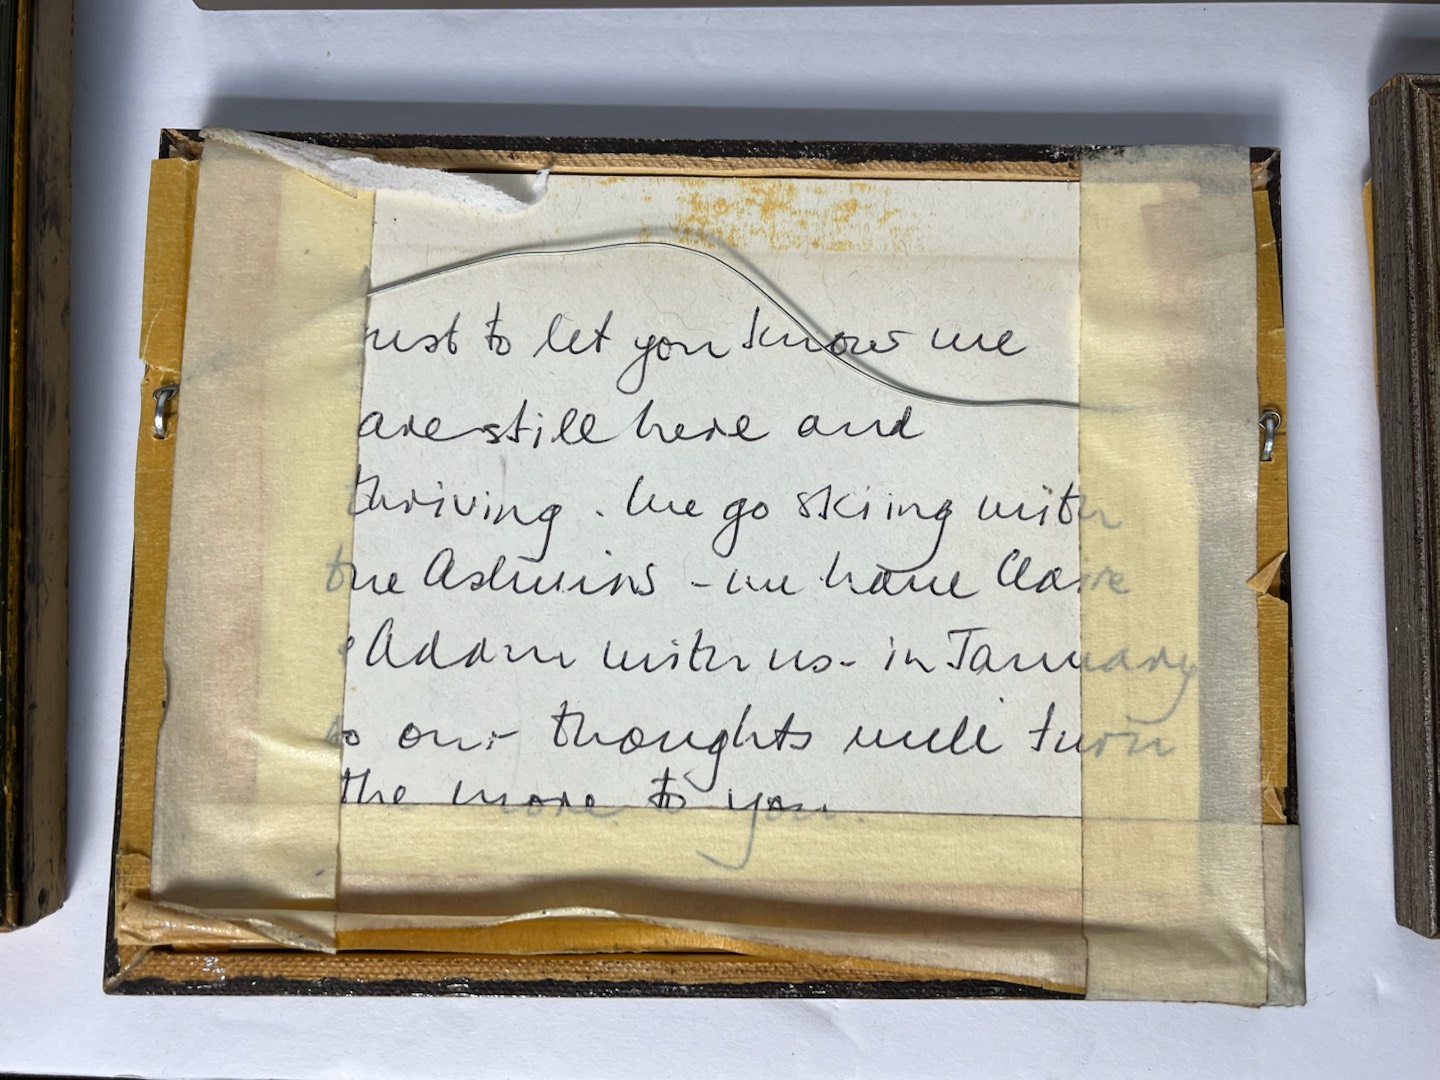 Just to let you know we
are still here and
thriving. We go skiing with
the - we have Claire
& Adam with us - in January
so our thoughts will turn
the more to you.